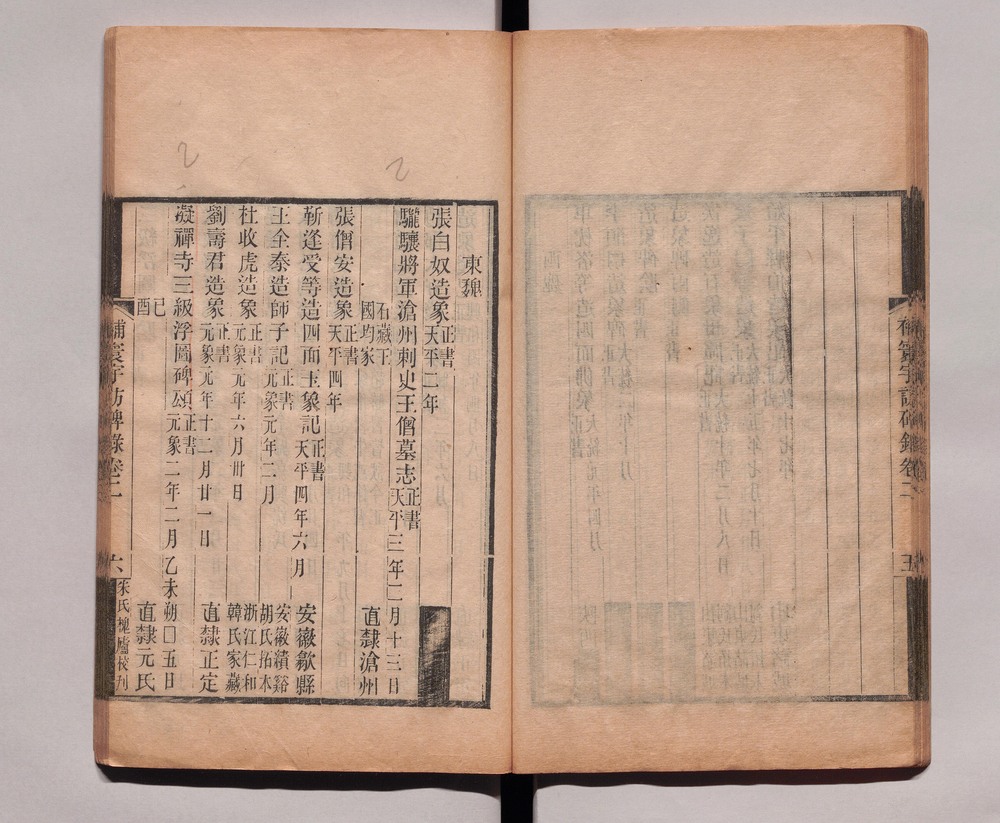 補寰宇訪碑錄卷二
五
東魏
張白奴造象正書
天平二年
驪驤將軍滄州刺史王僧墓志正書
天平三年二月十三日
石藏王
國均家
直隸滄州
張僧安造象正書
天平四年
靳逢受等造四面玉象記正書
天平四年六月
安徽歙縣
王全泰造師子記正書
元象元年二月
安徽績谿
胡氏拓本
杜收虎造象正書
元象元年六月卅日
浙江仁和
韓氏家藏
劉壽君造象正書
元象元年十二月廿一日
直隸正定
凝禪寺三級浮圖碑頌正書
元象二年二月乙未朔囗五日
己
酉
直隸元氏
補寰宇訪碑錄卷二
六
朱氏槐廬校刊